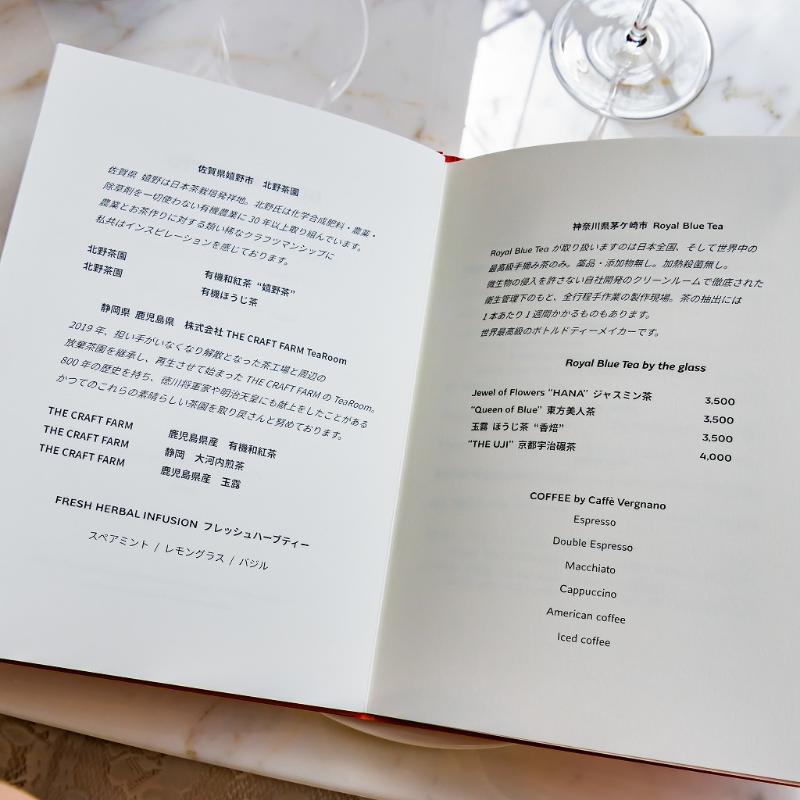 佐賀県嬉野市 北野茶園
佐賀県 嬉野は日本茶栽培発祥地。北野氏は化学合成肥料・農薬・
除草剤を一切使わない有機農業に 30 年以上取り組んでいます。
農業とお茶作りに対する類い稀なクラフツマンシップに
私共はインスピレーションを感じております。
北野茶園 有機和紅茶 “嬉野茶”
北野茶園 有機ほうじ茶
静岡県 鹿児島県 株式会社 THE CRAFT FARM TeaRoom
2019 年、担い手がいなくなり解散となった茶工場と周辺の
放棄茶園を継承し、再生させて始まった THE CRAFT FARM の TeaRoom。
800 年の歴史を持ち、徳川将軍家や明治天皇にも献上をしたことがある
かつてのこれらの素晴らしい茶園を取り戻さんと努めております。
THE CRAFT FARM 鹿児島県産 有機和紅茶
THE CRAFT FARM 静岡 大河内煎茶
THE CRAFT FARM 鹿児島県産 玉露
FRESH HERBAL INFUSION フレッシュハーブティー
スペアミント / レモングラス / バジル
神奈川県茅ケ崎市 Royal Blue Tea
Royal Blue Tea が取り扱いますのは日本全国、そして世界中の
最高級手摘み茶のみ。薬品・添加物無し。加熱殺菌無し。
微生物の侵入を許さない自社開発のクリーンルームで徹底された
衛生管理下のもと、全行程手作業の製作現場。茶の抽出には
1 本あたり 1 週間かかるものもあります。
世界最高級のボトルドティーメイカーです。
Royal Blue Tea by the glass
Jewel of Flowers “HANA” ジャスミン茶 3,500
“Queen of Blue” 東方美人茶 3,500
玉露 ほうじ茶 “香焙” 3,500
“THE UJI” 京都宇治碾茶 4,000
COFFEE by Caffè Vergnano
Espresso
Double Espresso
Macchiato
Cappuccino
American coffee
Iced coffee